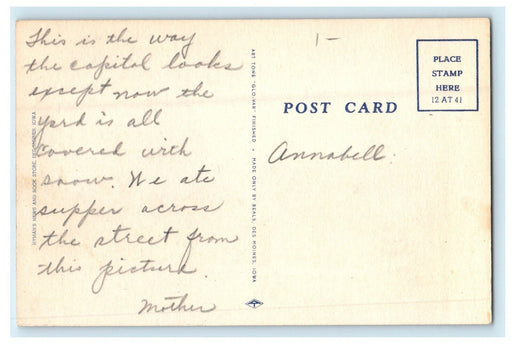 This is the way
the capitol looks
except now the
yard is all
covered with
snow. We ate
supper across
the street from
this picture.
Mother
HYMAN'S NEWS AND BOOK STORE, DES MOINES, IOWA
ART TONE "GLO-VAR" FINISHED • MADE ONLY BY BEALS, DES MOINES, IOWA
1-
POST CARD
PLACE
STAMP
HERE
12 AT 41
Annabell.